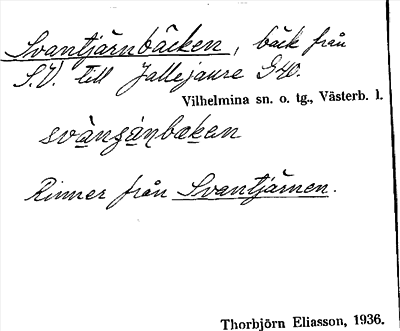 Svantjärnbäcken, bäck från
S.V. till Jallejaure G40.
Vilhelmina sn. o. tg., Västerb. l.
Rinner från Svantjärnen.
Thorbjörn Eliasson, 1936.